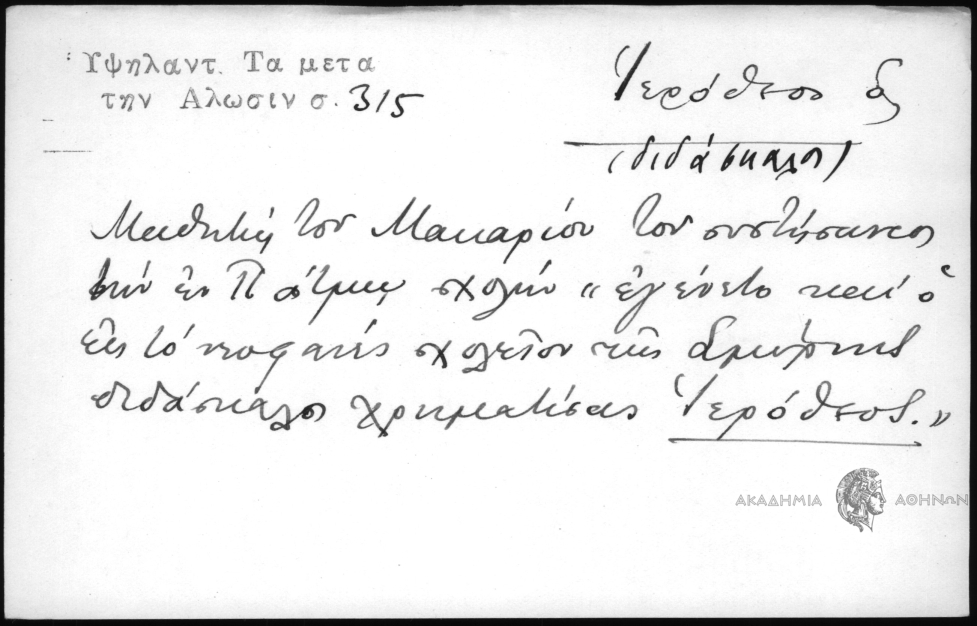 Υψηλαντ. Τα μετα
την Αλωσιν σ. 315
Ἱερόθεος
(διδάσκαλος)
Μαθητής του Μακαρίου του συστήσαντος
την ἐν Πάτμῳ σχολήν «ἐγένετο καί ὁ
εἰς τό νεοφανές σχολεῖον της Σμύρνης
διδάσκαλος χρηματίσας Ἱερόθεος.»
ΑΚΑΔΗΜΙΑ ΑΘΗΝΩΝ